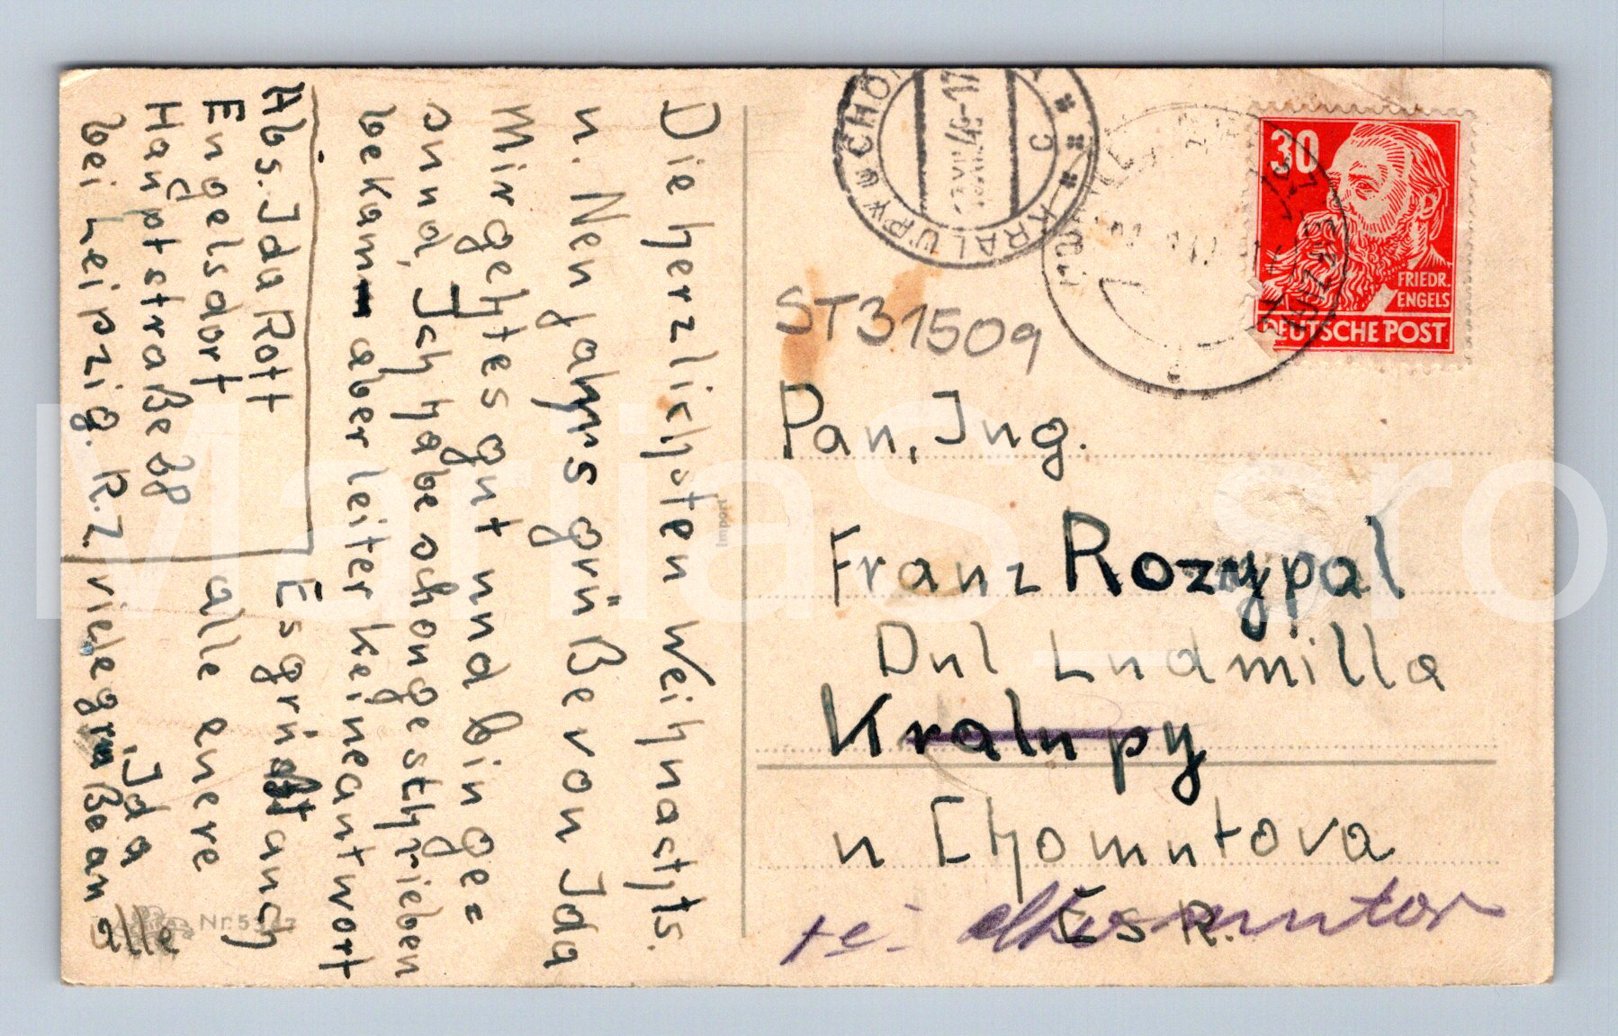 Die herzlichsten Weihnachts.
u. Neujahrsgrüße von Ida
Mir geht es gut und bin ge=
sund, Ich habe schon geschrieben
bekam aber leiter keine antwort
Es grüßt auch
alle anere
Ida
viele grüße an alle
Abs. Ida Rott
Engelsdorf
Hauptstraße 68
bei Leipzig. R.Z.
Nr. 5367
Import
KRALUPY u CHO
C
30
FRIEDR.
ENGELS
DEUTSCHE POST
ST31509
Pan, Ing.
Franz Rozypal
Dul Ludmilla
Kralupy
u Chomutova
ČSR.
MariaS_sro